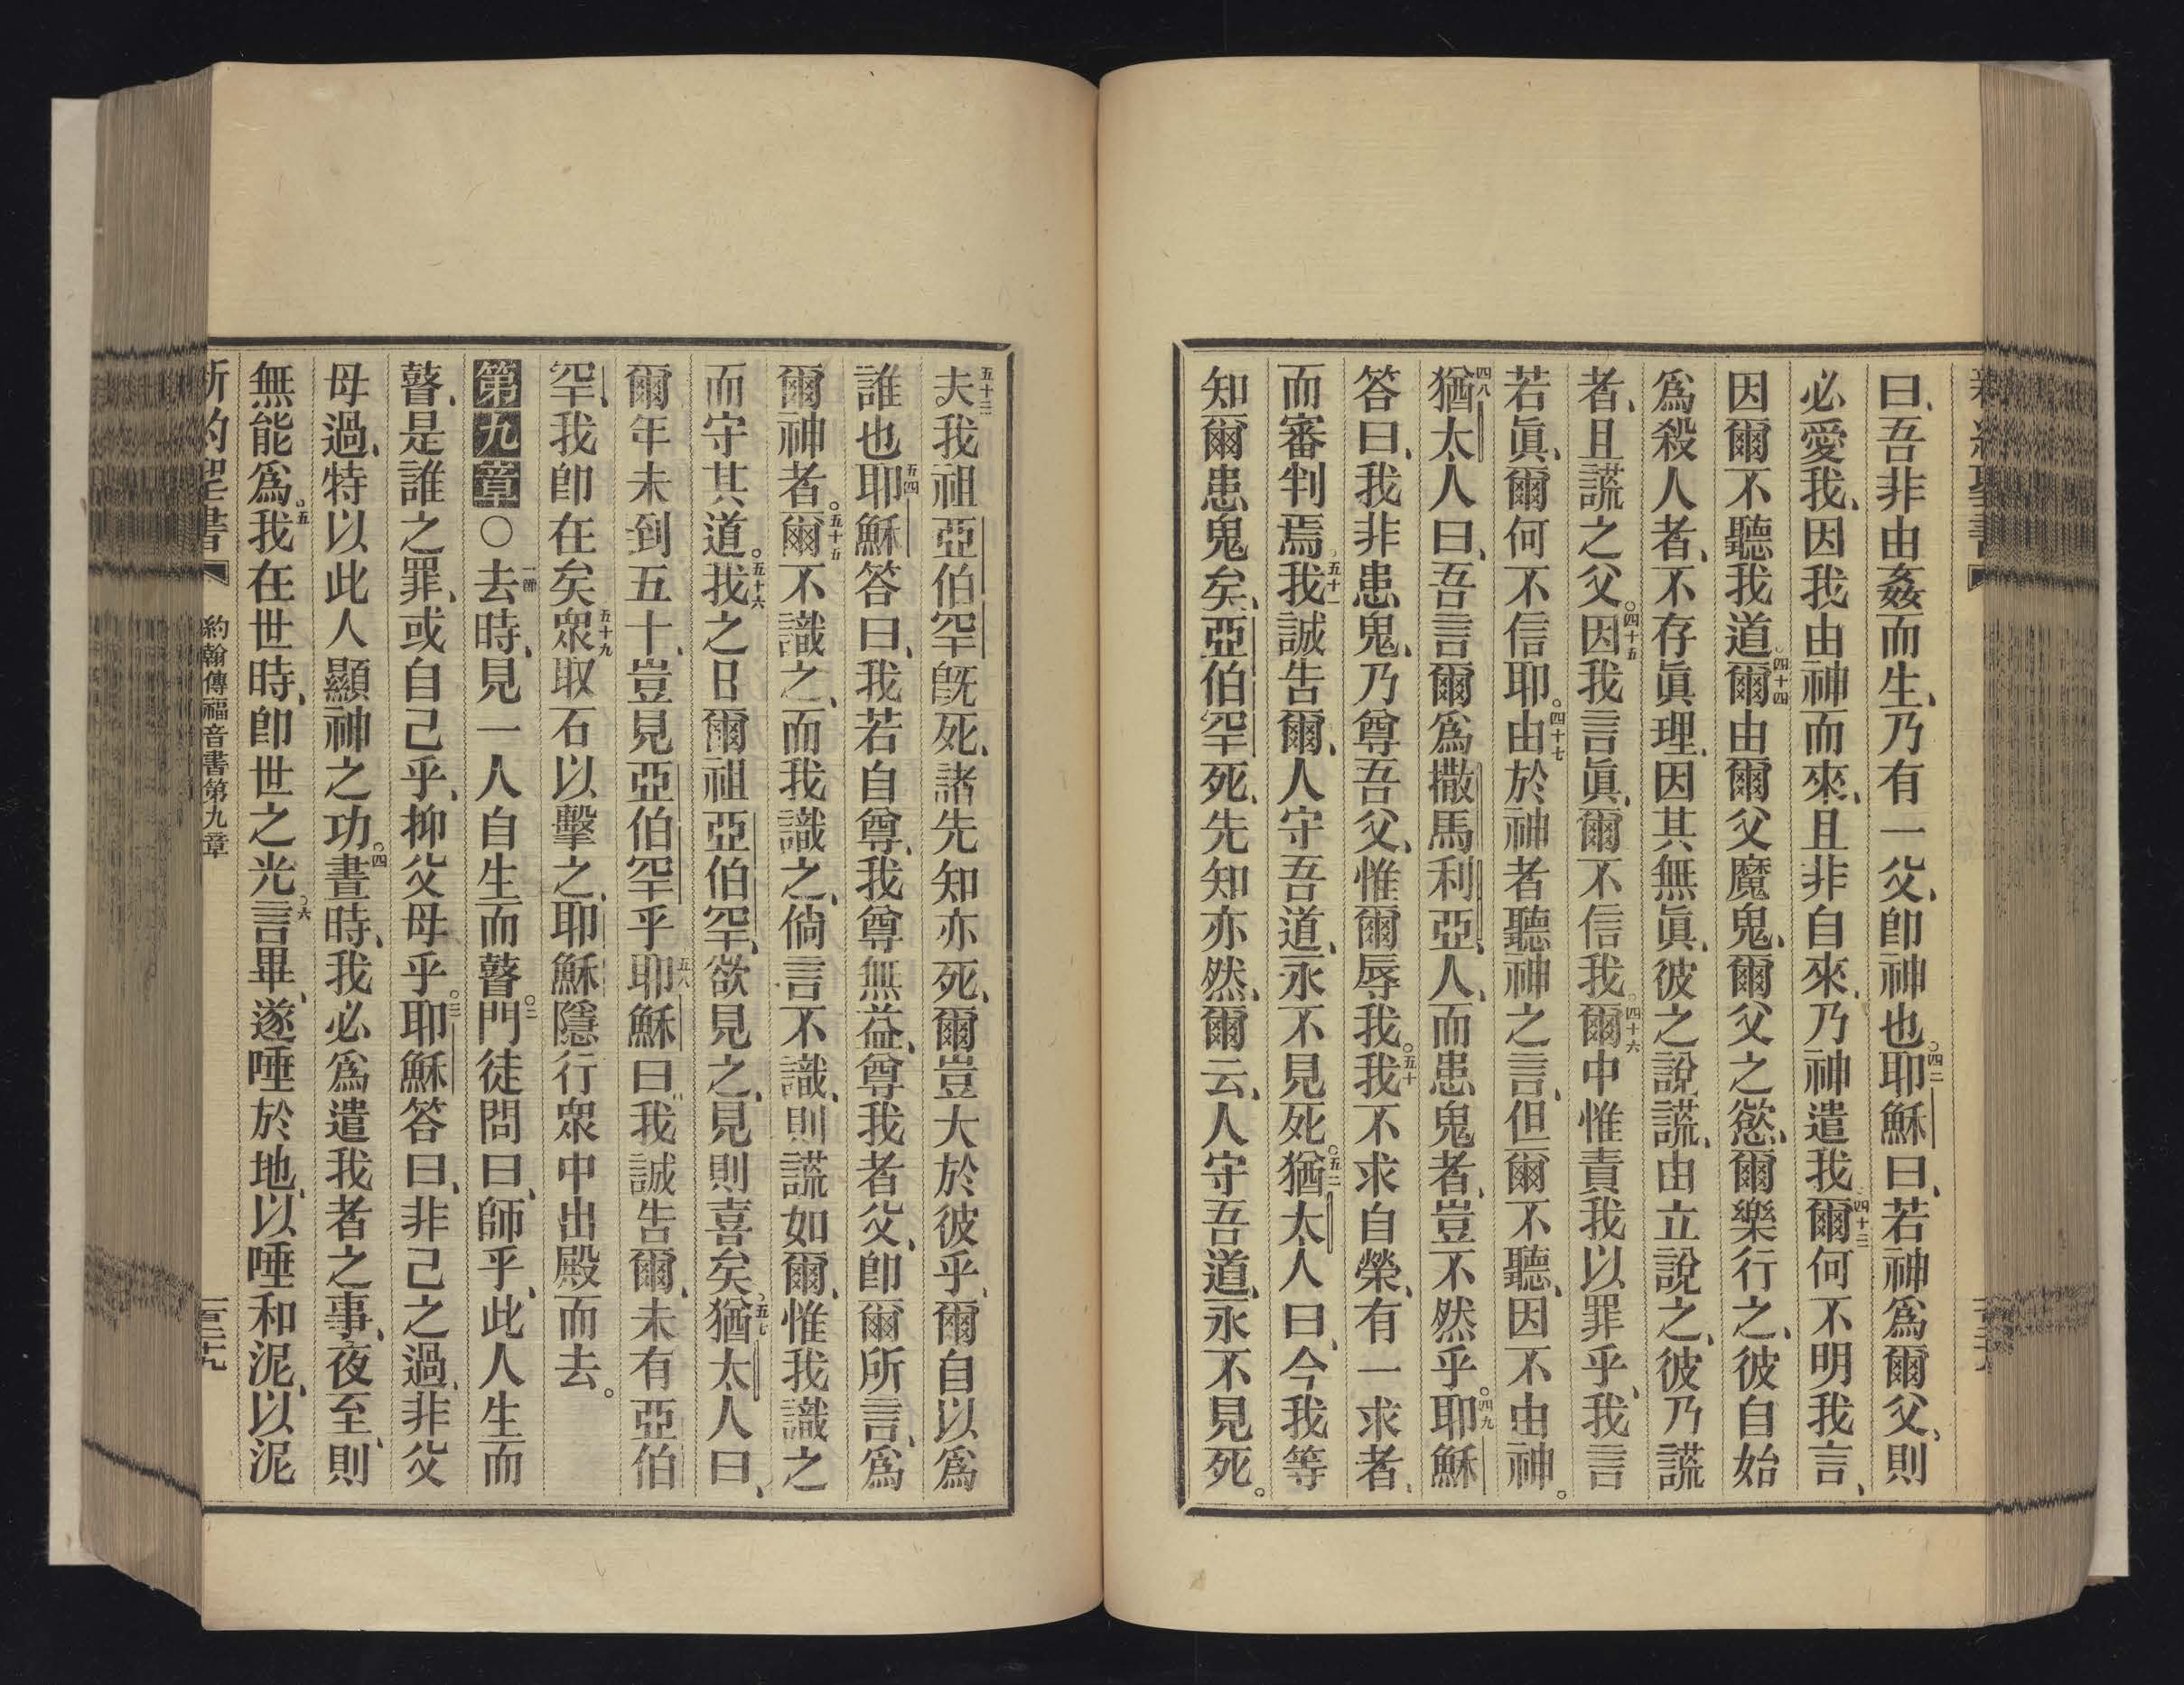 新約聖書
曰、吾非由姦而生、乃有一父、卽神也。四二耶穌曰、若神爲爾父、則
必愛我、因我由神而來、且非自來、乃神遣我、四十三爾何不明我言、
因爾不聽我道。四十四爾由爾父魔鬼、爾父之慾、爾樂行之、彼自始
爲殺人者、不存眞理、因其無眞、彼之說謊、由立說之、彼乃謊
者、且謊之父。四十五因我言眞、爾不信我。四十六爾中惟責我以罪乎、我言
若眞、爾何不信耶。四十七由於神者聽神之言、但爾不聽、因不由神。
四八猶太人曰、吾言爾爲撒馬利亞人、而患鬼者、豈不然乎。四九耶穌
答曰、我非患鬼、乃尊吾父、惟爾辱我。五十我不求自榮、有一求者、
而審判焉。五十一我誠告爾、人守吾道、永不見死。五二猶太人曰、今我等
知爾患鬼矣、亞伯罕死、先知亦然、爾云、人守吾道、永不見死。
五十三夫我祖亞伯罕旣死、諸先知亦死、爾豈大於彼乎、爾自以爲
誰也五四耶穌答曰、我若自尊、我尊無益、尊我者父、卽爾所言、爲
爾神者。五十五爾不識之、而我識之、倘言不識、則謊如爾、惟我識之
而守其道。五十六我之日爾祖亞伯罕、欲見之、見則喜矣。五七猶太人曰、
爾年未到五十、豈見亞伯罕乎五八耶穌曰、我誠告爾、未有亞伯
罕、我卽在矣五十九眾取石以擊之、耶穌隱行眾中出殿而去。
第九章〇一節去時、見一人自生而瞽。二門徒問曰、師乎、此人生而
瞽、是誰之罪、或自己乎、抑父母乎。三耶穌答曰、非己之過、非父
母過、特以此人顯神之功。四晝時、我必爲遣我者之事、夜至、則
無能爲。五我在世時、卽世之光。六言畢、遂唾於地、以唾和泥、以泥
新約聖書 約翰傳福音書第九章 一百二十九